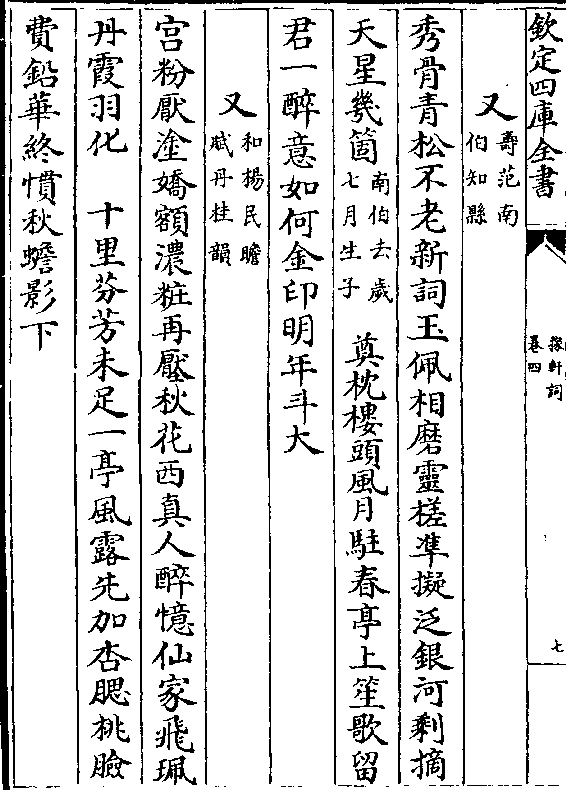 欽定四庫全書
稼軒詞
卷四
七
又
壽范南
伯知縣
秀骨青松不老新詞玉佩相磨靈槎凖擬泛銀河剩摘
天星幾箇
南伯去歲
七月生子
奠枕樓頭風月駐春亭上笙歌留
君一醉意如何金印明年斗大
又
和楊民瞻
賦丹桂韻
宫粉厭塗嬌額濃粧再壓秋花西真人醉憶仙家飛珮
丹霞羽化 十里芬芳未足一亭風露先加杏腮桃臉
費鉛華終慣秋蟾影下